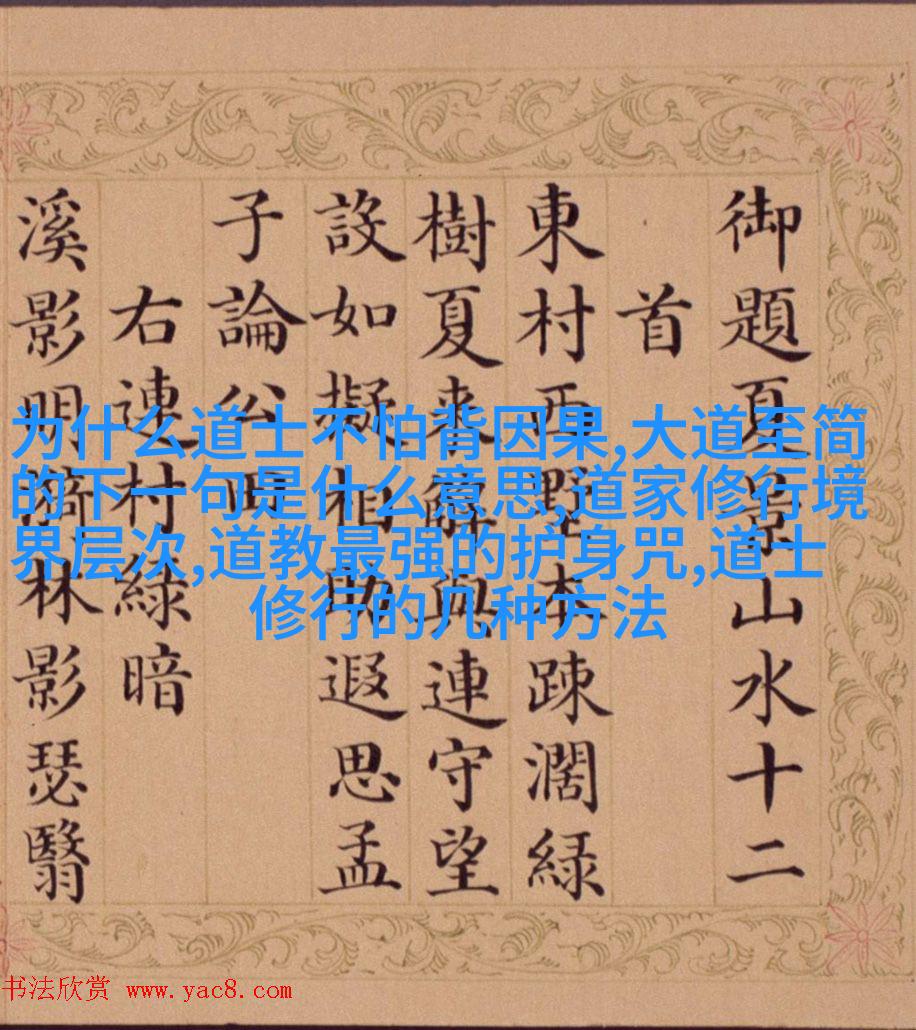 御題夏景山水十二
首
東村西墅本踈濶緑
樹夏来解與連守望
設如擬相助遐思孟
子論公田
右連村緑暗
溪影明漪林影瑟翳
为什么道士不怕背因果,大道至简
的下一句是什么意思,道家修行境
界层次,道教最强的护身咒,道士
修行的几种方法
书法欣赏 www.yac8.com